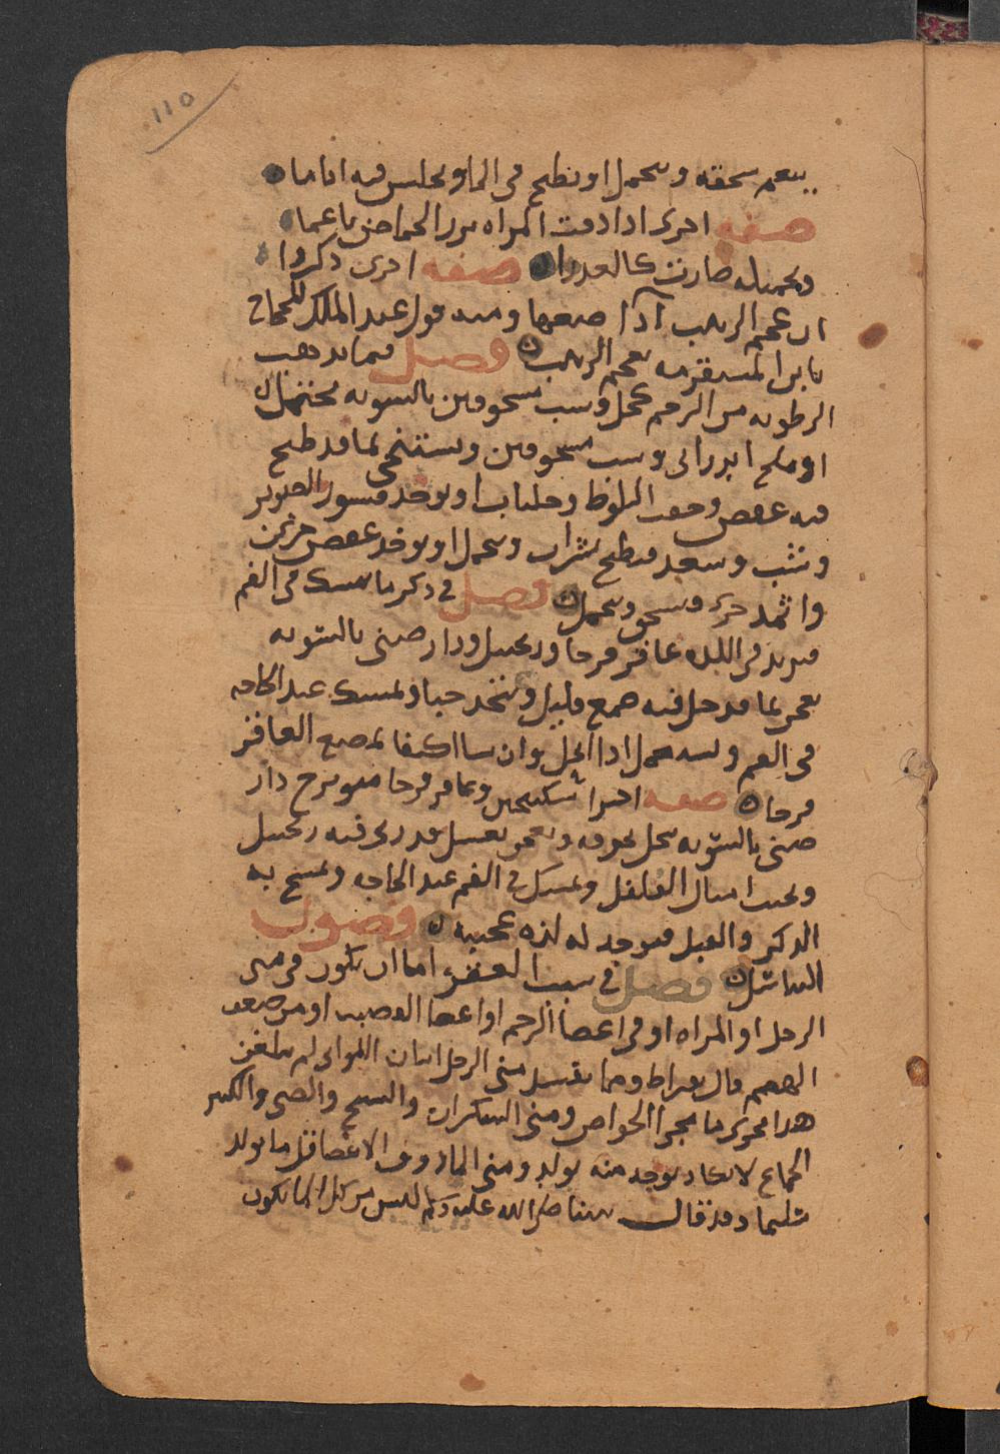 ١١٥
ينعم سحقه ويتحمل او يطبخ في الماء ويجلس فيه اياما
صفه اخرى اذا دقت المراه بزر الحماض ناعما
وتحملته صارت كالعذراء صفه اخرى ذكروا
ان عجم الزبيب اذا ضيقها ومنه قول عبد الملك للحجاج
يا ابن المستفرمه بعجم الزبيب فصل فيما يذهب
الرطوبه من الرحم كحل وشب مسحوقين بالسويه يحتملان
او ملح اندراني وشب مسحوقين ويستنجي بما قد طبخ
فيه عفص وجفت البلوط وجلنار او يوخذ قشور الصنوبر
وشب وسعد فيطبخ بشراب ويتحمل او يوخذ عفص جزئين
واثمد جزء ويسحق ويتحمل فصل في ذكر ما يمسك في الفم
فيزيد في اللذه عاقر قرحا وزنجبيل ودار صيني بالسويه
يعجن بما قد حل فيه صمغ قليل ويتخذ حبا ويمسك عند الحاجه
في الفم وليستعمل اذا انحل وان شا اكتفا بمضغ العاقر
قرحا صفه اخرى سكبينج وعاقر قرحا ميويزج دار
صيني بالسويه ينخل بحريره ويعجن بعسل قد ربي فيه زنجبيل
ويحبب امثال الفلفل ويمسك في الفم عند الحاجه ويمسح به
الذكر والقبل فيوجد له لذه عجيبه فصول
التناسل فصل في سبب العقم اما ان يكون في مني
الرجل او المراه او في اعضا الرحم او اعضا القضيب او من ضعف
الهضم قال بقراط ومما يفسد مني الرجل اتيان اللواتي لم يبلغن
هذا مجرى ما مجرا الخواص ومني السكران والشيخ والصبي والكثير
الجماع لا يكاد يوجد منه يولد ومني الماووف الاعضا قل ما يولد
سليما وقد قال نبينا صلى الله عليه وسلم ليس من كل الماء يكون